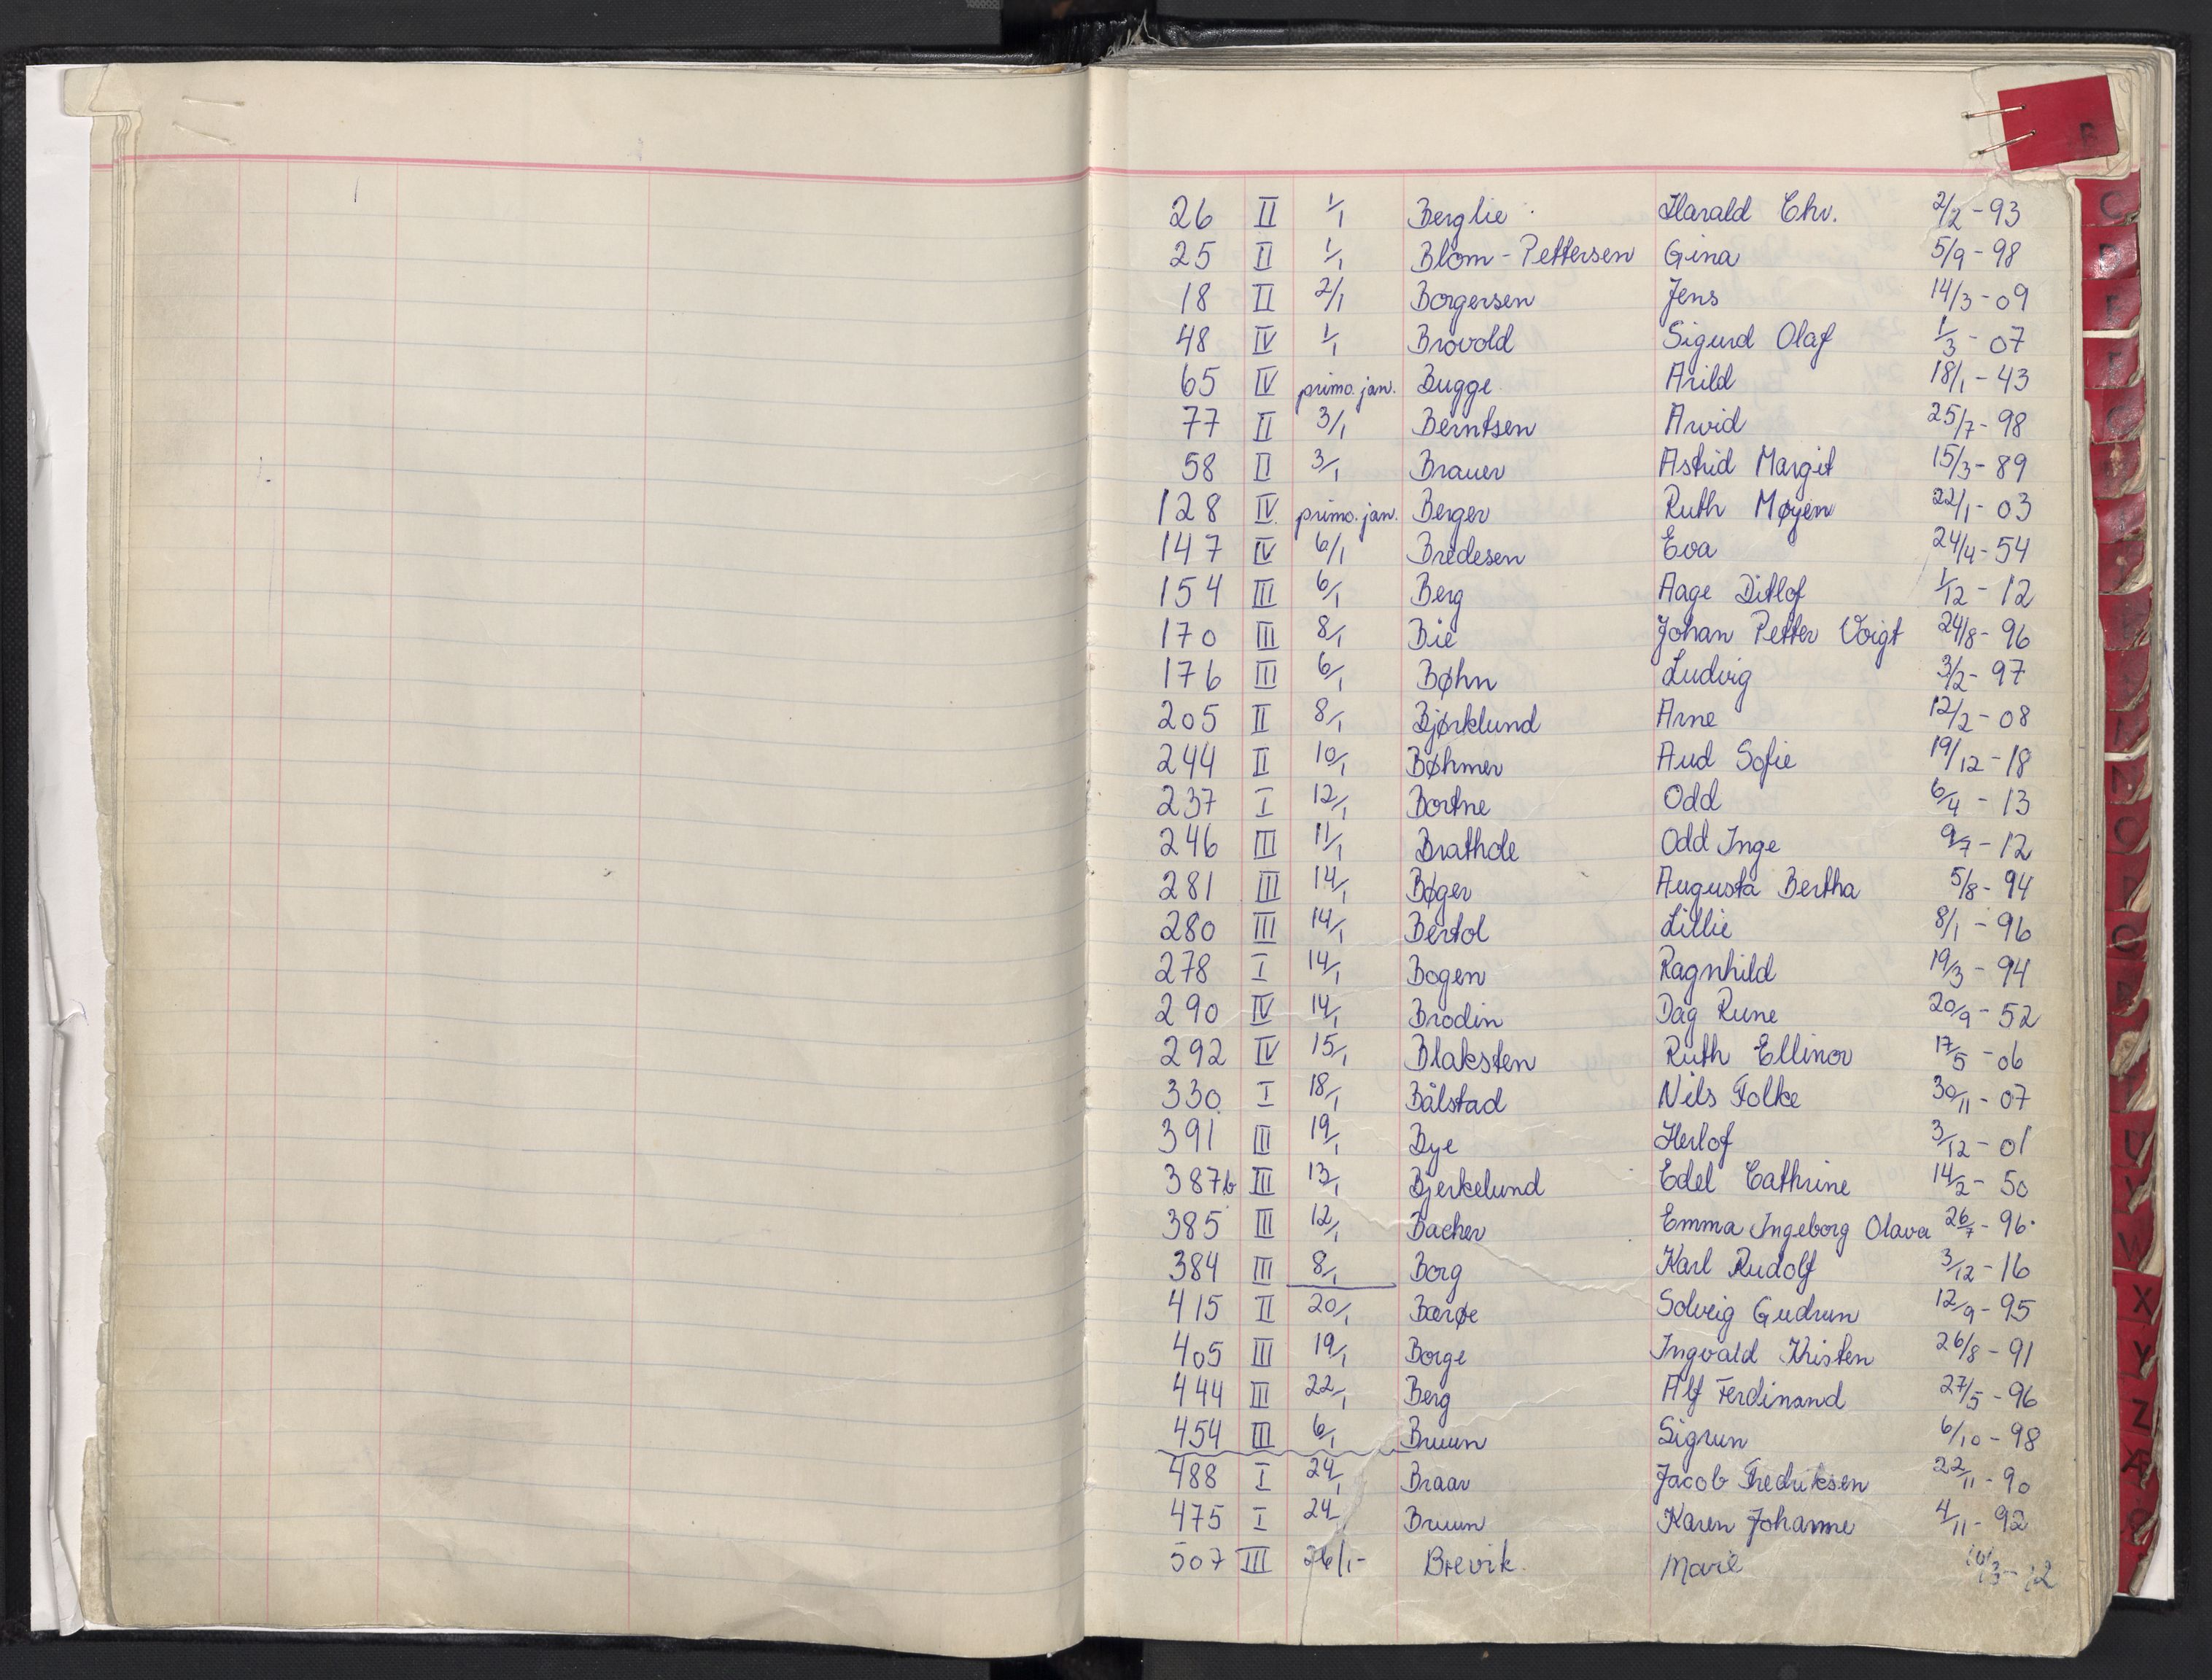 B
26 II 1/1 Berglie Harald Chr. 2/2-93
25 II 1/1 Blom-Pettersen Gina 5/9-98
18 II 2/1 Borgersen Jens 14/3-09
48 IV 1/1 Brovold Sigurd Olaf 1/3-07
65 IV primo.jan. Bugge Arild 18/1-43
77 II 3/1 Berntsen Arvid 25/7-98
58 II 3/1 Brauer Astrid Margit 15/3-89
128 IV primo.jan. Berger Ruth Møyen 22/1-03
147 IV 6/1 Bredesen Eva 24/4-54
154 III 6/1 Berg Aage Ditlof 1/12-12
170 III 8/1 Bie Johan Petter Voigt 24/8-96
176 III 6/1 Bøhn Ludvig 3/2-97
205 II 8/1 Bjørklund Arne 12/2-08
244 II 10/1 Bøhmer Aud Sofie 19/12-18
237 I 12/1 Bortne Odd 6/4-13
246 III 11/1 Brathole Odd Inge 9/7-12
281 III 14/1 Bøger Augusta Bertha 5/8-94
280 III 14/1 Bertol Lillie 8/1-96
278 I 14/1 Bogen Ragnhild 19/3-94
290 IV 14/1 Brodin Dag Rune 20/9-52
292 IV 15/1 Blaksten Ruth Ellinor 17/5-06
330 I 18/1 Bålstad Nils Folke 30/11-07
391 III 19/1 Bye Herlof 3/12-01
387b III 13/1 Bjerkelund Edel Cathrine 14/2-50
385 III 12/1 Bacher Emma Ingeborg Olava 26/7-96
384 III 8/1 Borg Karl Rudolf 3/12-16
415 II 20/1 Barøe Solveig Gudrun 12/9-95
405 III 19/1 Borge Ingvald Kristen 26/8-91
444 III 22/1 Berg Alf Ferdinand 27/5-96
454 III 6/1 Bruun Sigrun 6/10-98
488 I 24/1 Braar Jacob Fredriksen 22/11-90
475 I 24/1 Bruun Karen Johanne 4/11-92
507 III 26/1- Brevik Marie
C
U
W
X
Y
Z
Æ